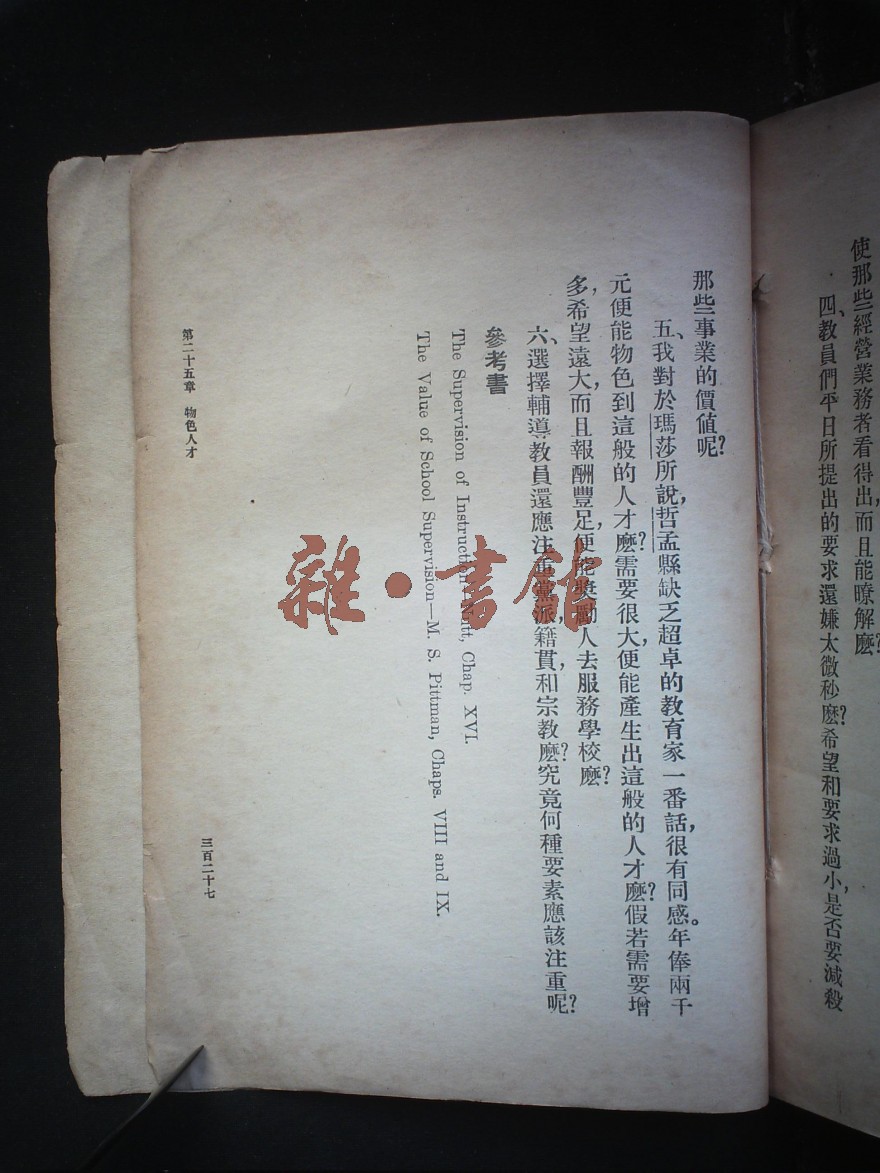 使那些經營業務者看得出，而且能暸解麽？
四、教員們平日所提出的要求還嫌太微秒麽？希望和要求過小，是否要減殺
那些事業的價値呢？
五、我對於瑪莎所說，哲孟縣缺乏超卓的教育家一番話，很有同感。年俸兩千
元便能物色到這般的人才麽？需要很大，便能產生出這般的人才麽？假若需要增
多，希望遠大，而且報酬豐足，便能獎勵人去服務學校麽？
六、選擇輔導教員還應注重黨派，籍貫，和宗教麽？究竟何種要素應該注重呢？
參考書
The Supervision of Instruction Chap. XVI.
The Value of School Supervision—M. S. Pittman, Chaps. VIII and IX.
第二十五章 物色人才
三百二十七
雜·書館